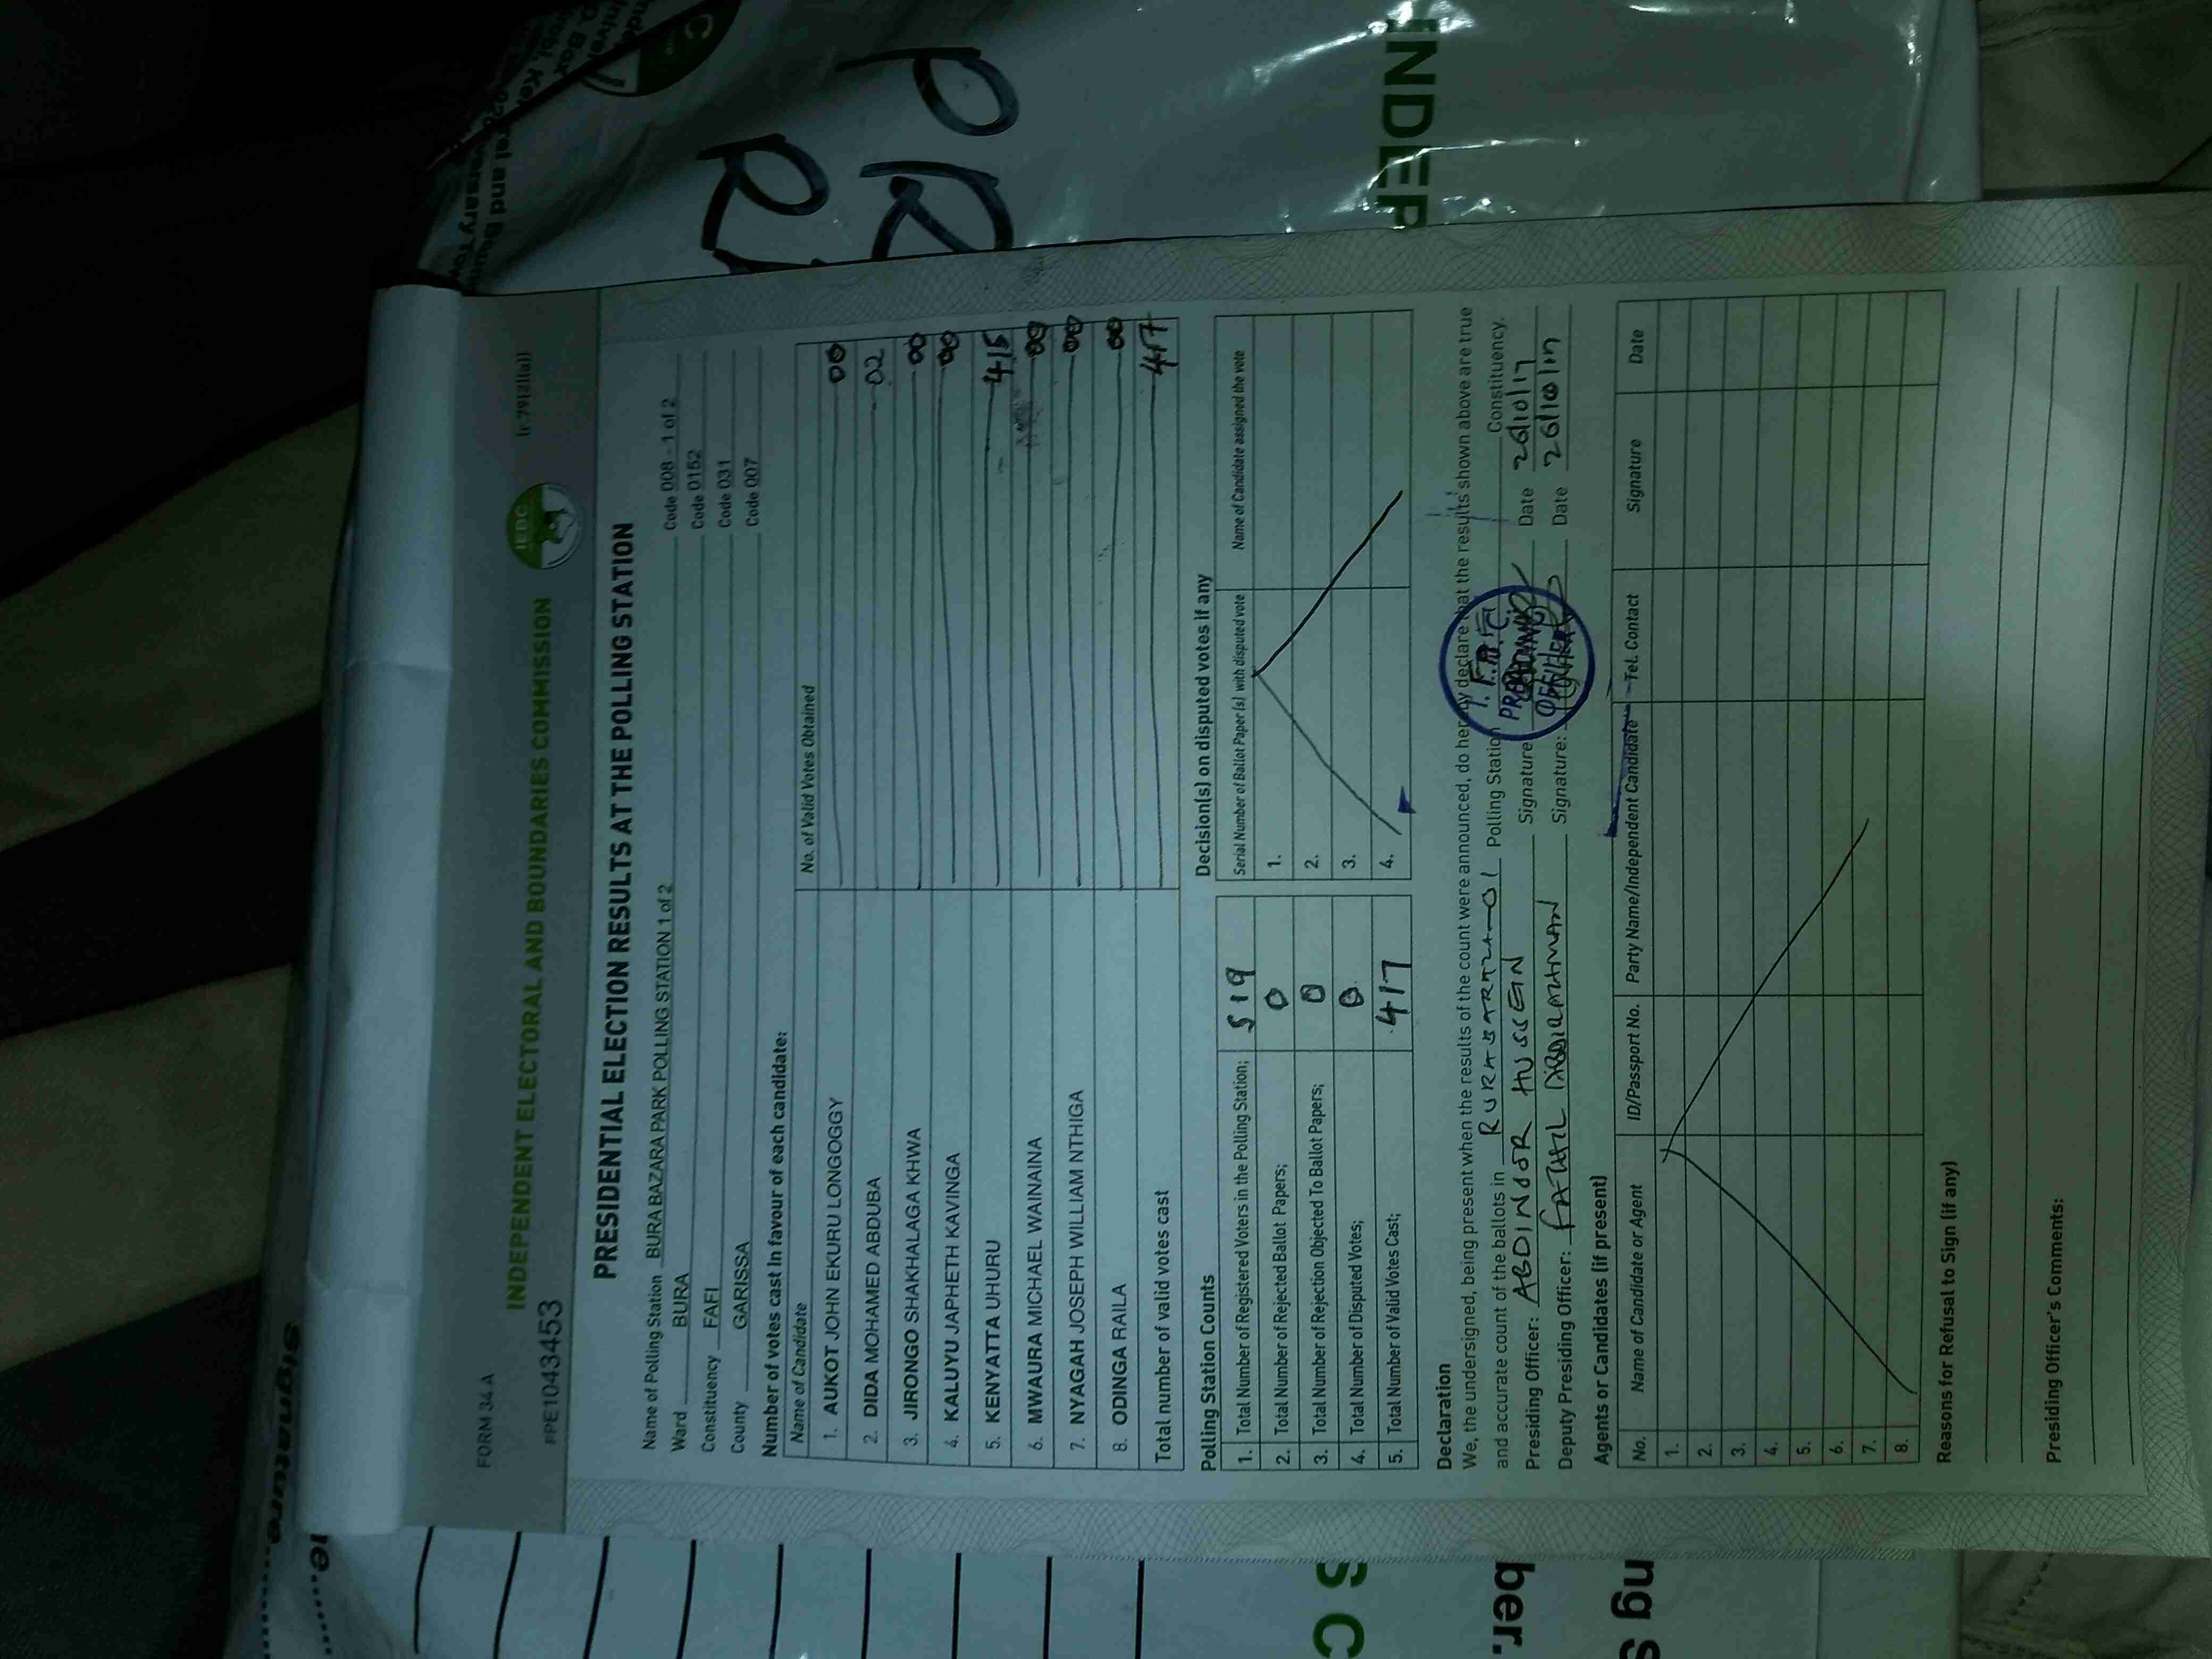 FORM 34 A
INDEPENDENT ELECTORAL AND BOUNDARIES COMMISSION
IEBC
(r.79(2)(a))
FPE1043453
PRESIDENTIAL ELECTION RESULTS AT THE POLLING STATION
Name of Polling Station BURA BAZARA PARK POLLING STATION 1 of 2 Code 008 - 1 of 2
Ward BURA Code 0152
Constituency FAFI Code 031
County GARISSA Code 007
Number of votes cast in favour of each candidate:
Name of Candidate No. of Valid Votes Obtained
1. AUKOT JOHN EKURU LONGOGGY 00
2. DIDA MOHAMED ABDUBA 02
3. JIRONGO SHAKHALAGA KHWA 00
4. KALUYU JAPHETH KAVINGA 00
5. KENYATTA UHURU 415
6. MWAURA MICHAEL WAINAINA 00
7. NYAGAH JOSEPH WILLIAM NTHIGA 00
8. ODINGA RAILA 00
Total number of valid votes cast 417
Polling Station Counts
1. Total Number of Registered Voters in the Polling Station; 519
2. Total Number of Rejected Ballot Papers; 0
3. Total Number of Rejection Objected To Ballot Papers; 0
4. Total Number of Disputed Votes; 0
5. Total Number of Valid Votes Cast; 417
Decision(s) on disputed votes if any
Serial Number of Ballot Paper (s) with disputed vote Name of Candidate assigned the vote
1.
2.
3.
4.
Declaration
We, the undersigned, being present when the results of the count were announced, do hereby declare that the results shown above are true
and accurate count of the ballots in Polling Station Constituency.
Presiding Officer: ABDINOOR HUSSEIN Signature Date 26/10/17
Deputy Presiding Officer: Signature: Date 26/10/17
Agents or Candidates (if present)
No. Name of Candidate or Agent ID/Passport No. Party Name/Independent Candidate Tel. Contact Signature Date
1.
2.
3.
4.
5.
6.
7.
8.
Reasons for Refusal to Sign (if any)
Presiding Officer's Comments:
INDEP
PR
S C
ber.
ng S
signature